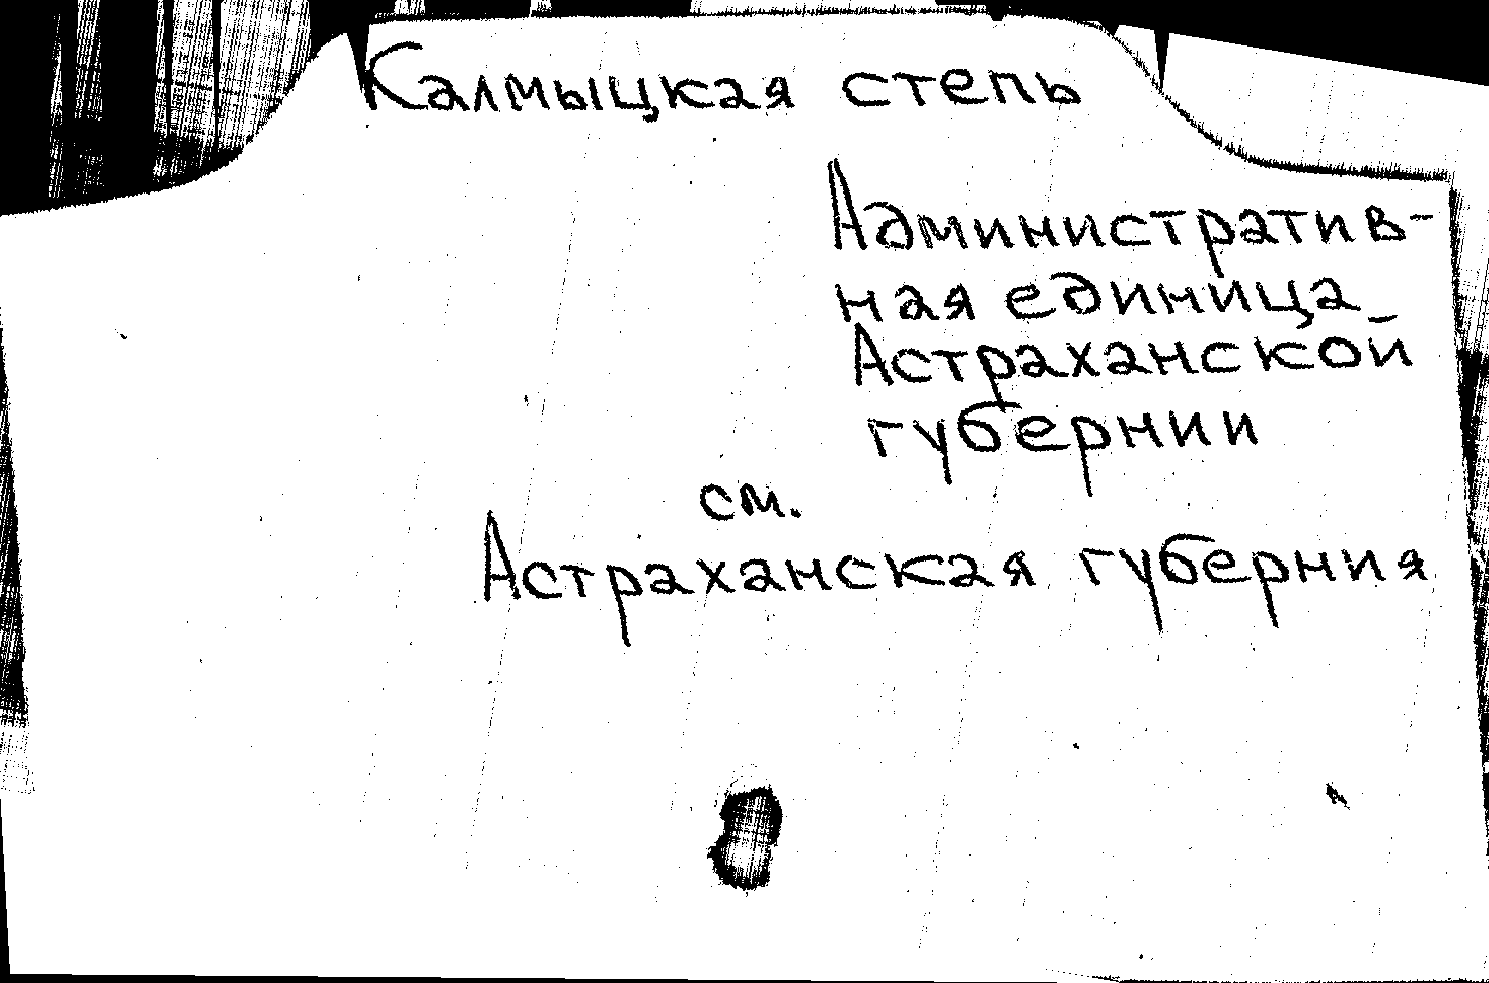 Калмыцкая степь
Административ-
ная единица
Астраханской
губернии
см.
Астраханская губерния